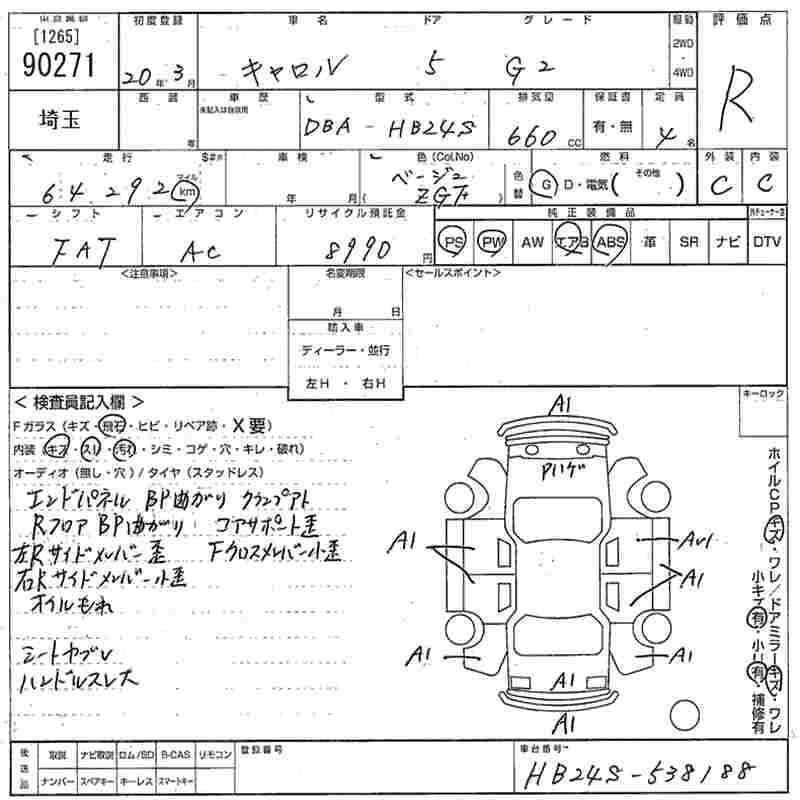 [1265]
90271
初度登録
車名
ドア
グレード
駆動
評価点
20年3月
キャロル
5
G2
2WD
4WD
R
埼玉
西暦
年
車歴
未記入は自家用
型式
DBA-HB24S
排気量
660cc
保証書
有・無
定員
4名
走行
64292
マイル
km
車検
年 月
色(Col,No)
ベージュ
( ZGF )
色替
燃料
G D・電気( その他 )
外装
C
内装
C
シフト
FAT
エアコン
AC
リサイクル預託金
8990円
純正装備品
PS PW AW エアB ABS 革 SR ナビ DTV
<注意事項>
名変期限
月 日
<セールスポイント>
輸入車
ディーラー・並行
左H ・ 右H
＜検査員記入欄＞
キーロック
Fガラス(キズ・飛石・ヒビ・リペア跡・X要)
内装(キズ・スリ・汚れ・シミ・コゲ・穴・キレ・破れ)
オーディオ(無し・穴)/タイヤ(スタッドレス)
エンドパネル BP曲がり クランプアト
Rフロア BP曲がり コアサポート歪
左Rサイドメンバー歪 Fクロスメンバー小歪
右Rサイドメンバー小歪
オイルもれ
シートヤブレ
ハンドルスレ大
A1
Pハゲ
A1
AU1
A1
A1
A1
A1
A1
ホイルCPキズ・ワレ/ドアミラーキズ・ワレ
小キズ有・小凹有・補修有
後送品
取説 ナビ取説 ロム/SD B-CAS リモコン
ナンバー スペアキー キーレス スマートキー
登録番号
車台番号
HB24S-538188